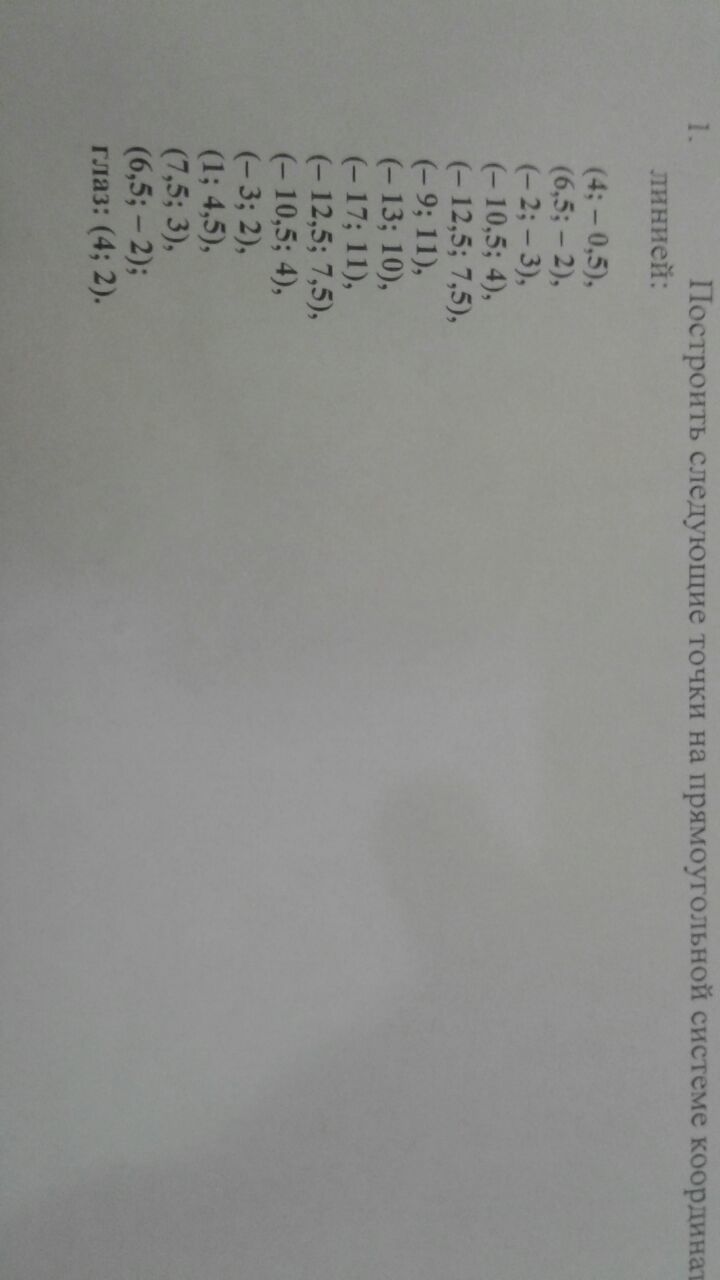 1. Построить следующие точки на прямоугольной системе координат
линией:
(4; – 0,5),
(6,5; – 2),
(– 2; – 3),
(– 10,5; 4),
(– 12,5; 7,5),
(– 9; 11),
(– 13; 10),
(– 17; 11),
(– 12,5; 7,5),
(– 10,5; 4),
(– 3; 2),
(1; 4,5),
(7,5; 3),
(6,5; – 2);
глаз: (4; 2).